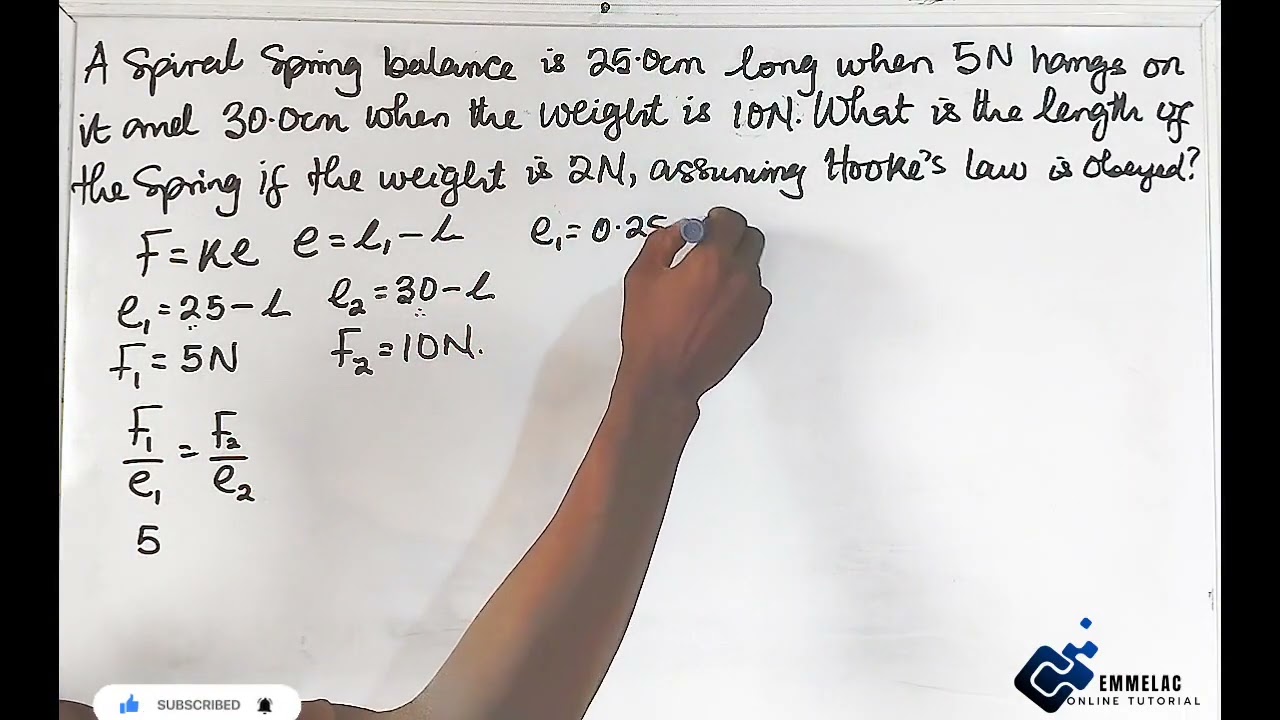 A Spiral Spring balance is 25.0cm long when 5N hangs on
it and 30.0cm when the weight is 10N. What is the length of
the Spring if the weight is 2N, assuming Hooke's law is obeyed?
F = Ke e = l₁ - l e₁ = 0.25
e₁ = 25 - l e₂ = 30 - l
F₁ = 5N F₂ = 10N.
F₁/e₁ = F₂/e₂
5
SUBSCRIBED
EMMELAC
ONLINE TUTORIAL